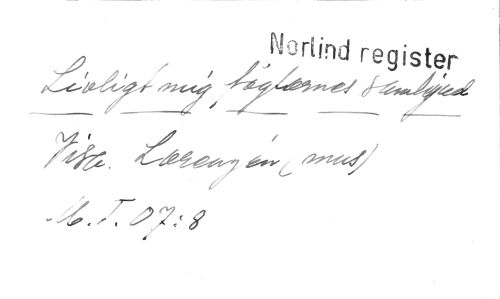 Norlind register
Livligt mig fåglarnes samljud
Visa. Lorenzén (mus)
M.T. 07:8